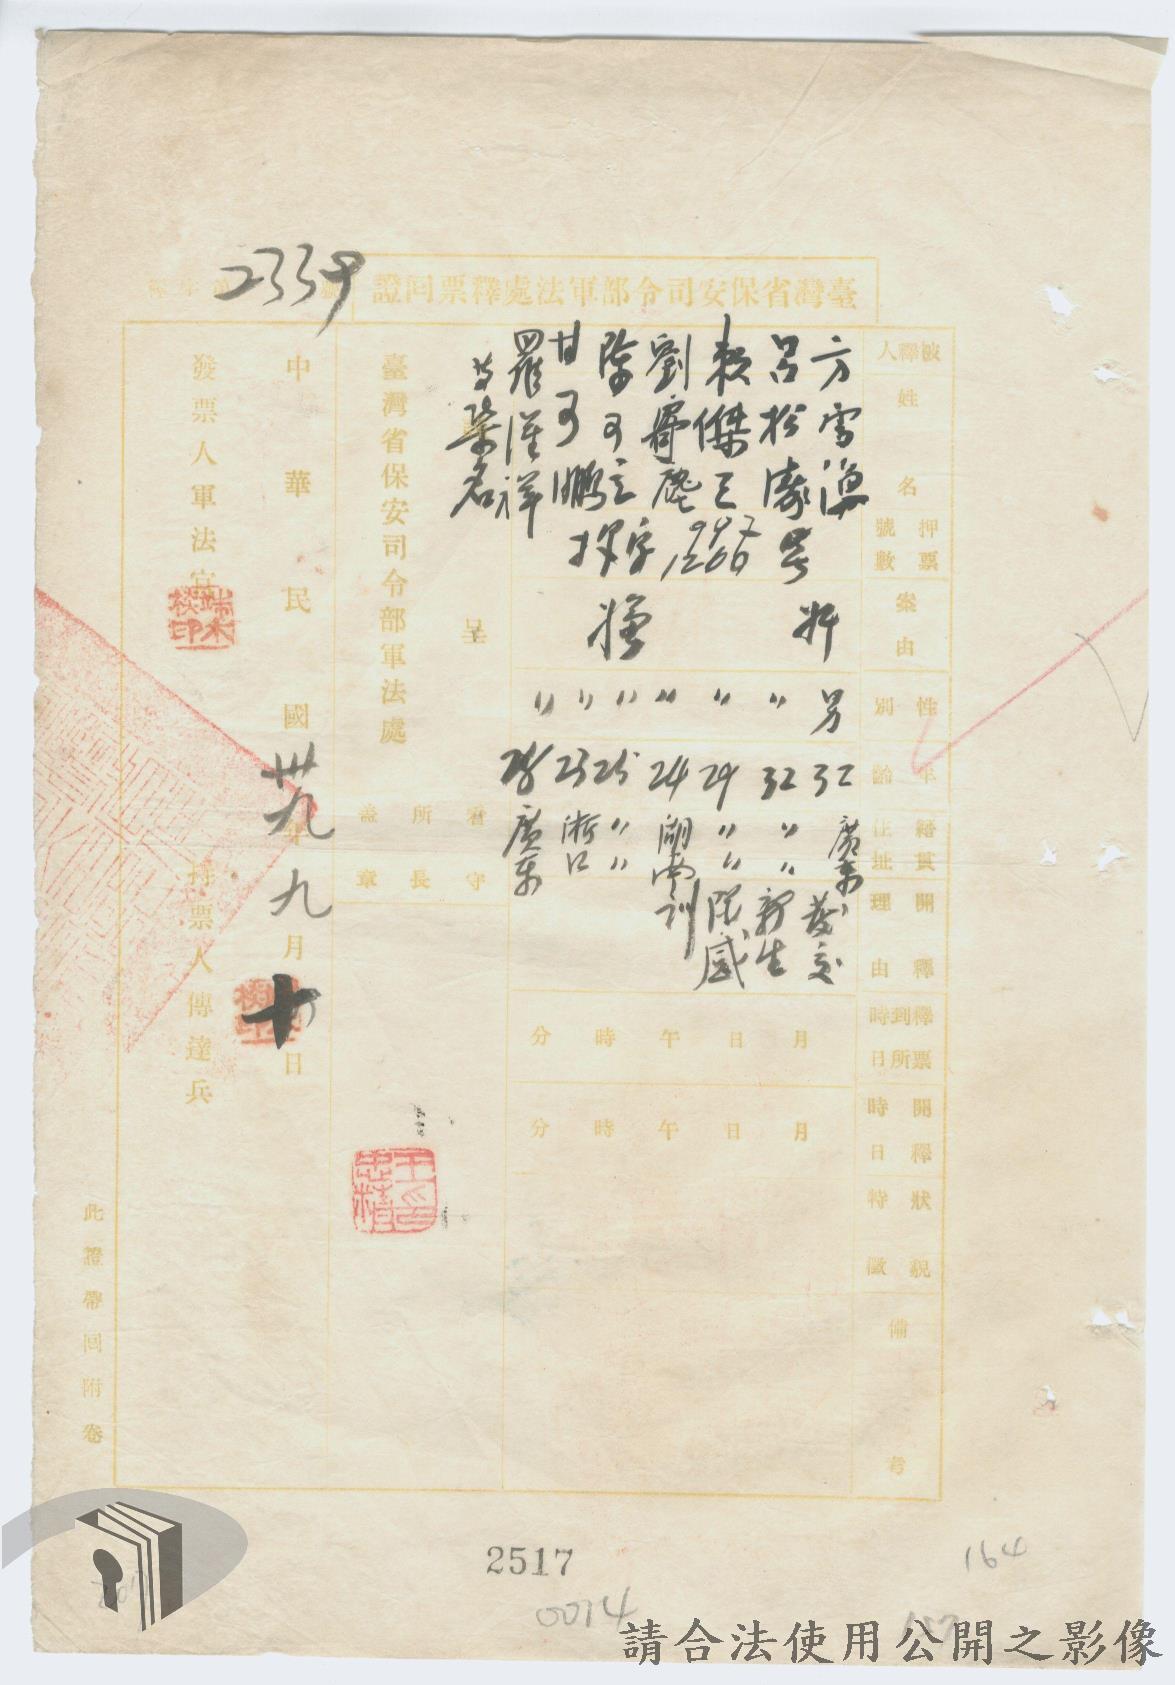 臺灣省保安司令部軍法處釋票回證
2339
被釋人
姓名
押票號數
案由
性別
年齡
籍貫住址
開釋理由
釋票到所時日
開釋時日
狀貌特徵
備考
方雪
呂松
賴傑三
劉寄塵
陳可立
甘可鵬
羅漢祥
等柒名
字
997
1266
號
男
〃
〃
〃
〃
〃
〃
32
32
29
24
25
23
28
廣東
〃〃
〃〃
湖南
〃〃
浙江
廣東
發交
新生
訓
月日午時分
月日午時分
呈
臺灣省保安司令部軍法處
看守所長
蓋章
中華民國卅九年九月十日
發票人軍法官
端木棪印
持票人傳達兵
此證帶回附卷
2517
0014
164
請合法使用公開之影像